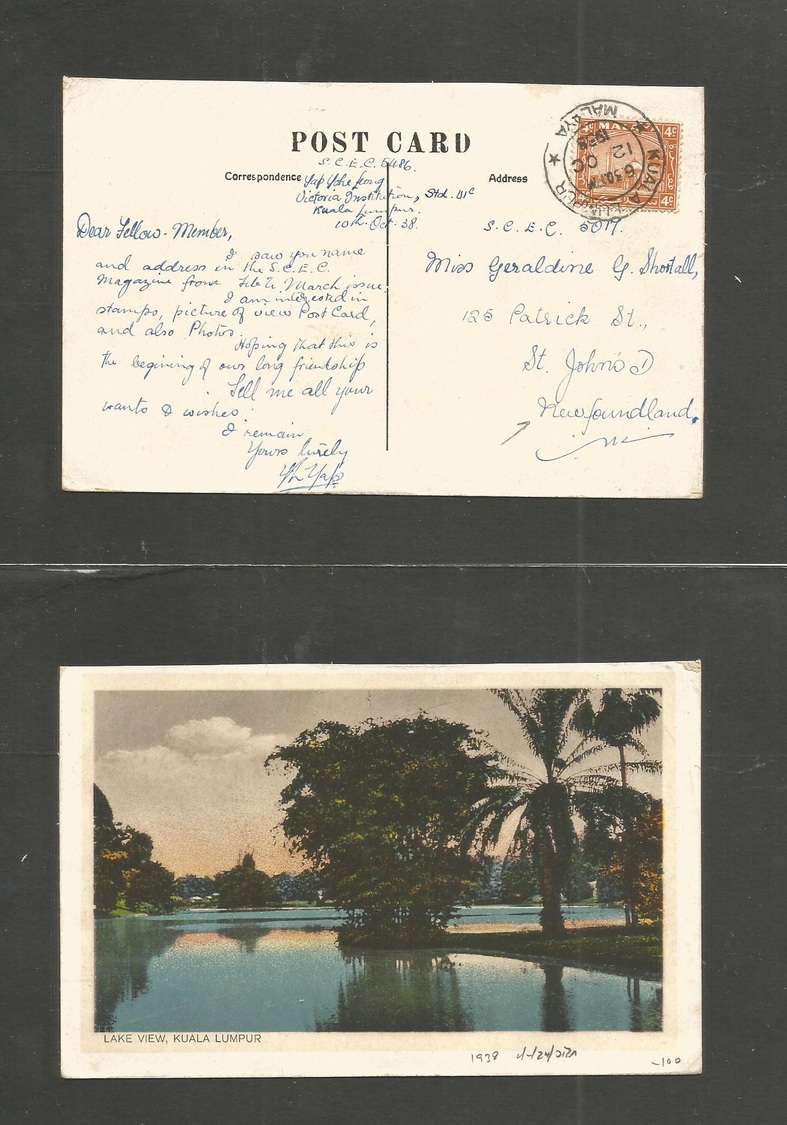 POST CARD
S.C.E.C. 5486.
Correspondence
Yap Yoke
Victoria Institution, Std. VIc
Kuala Lumpur.
10th. Oct. 38.
Dear Fellow-Member,
I saw you name
and address in the S.C.E.C.
Magazine from March issue.
I am interested in
stamps, picture of view Post Card,
and also Photos.
Hoping that this is
the begining of our long friendship
Tell me all your
wants & wishes.
I remain
Yours
Yap.
Address
S.C.E.C. 5017.
Miss Geraldine G. Shortall,
125 Patrick St.,
St. John's
Newfoundland.
4c 4c
4c
KUALA LUMPUR
MALAYA
12 OC
1938
LAKE VIEW, KUALA LUMPUR
1938
-100